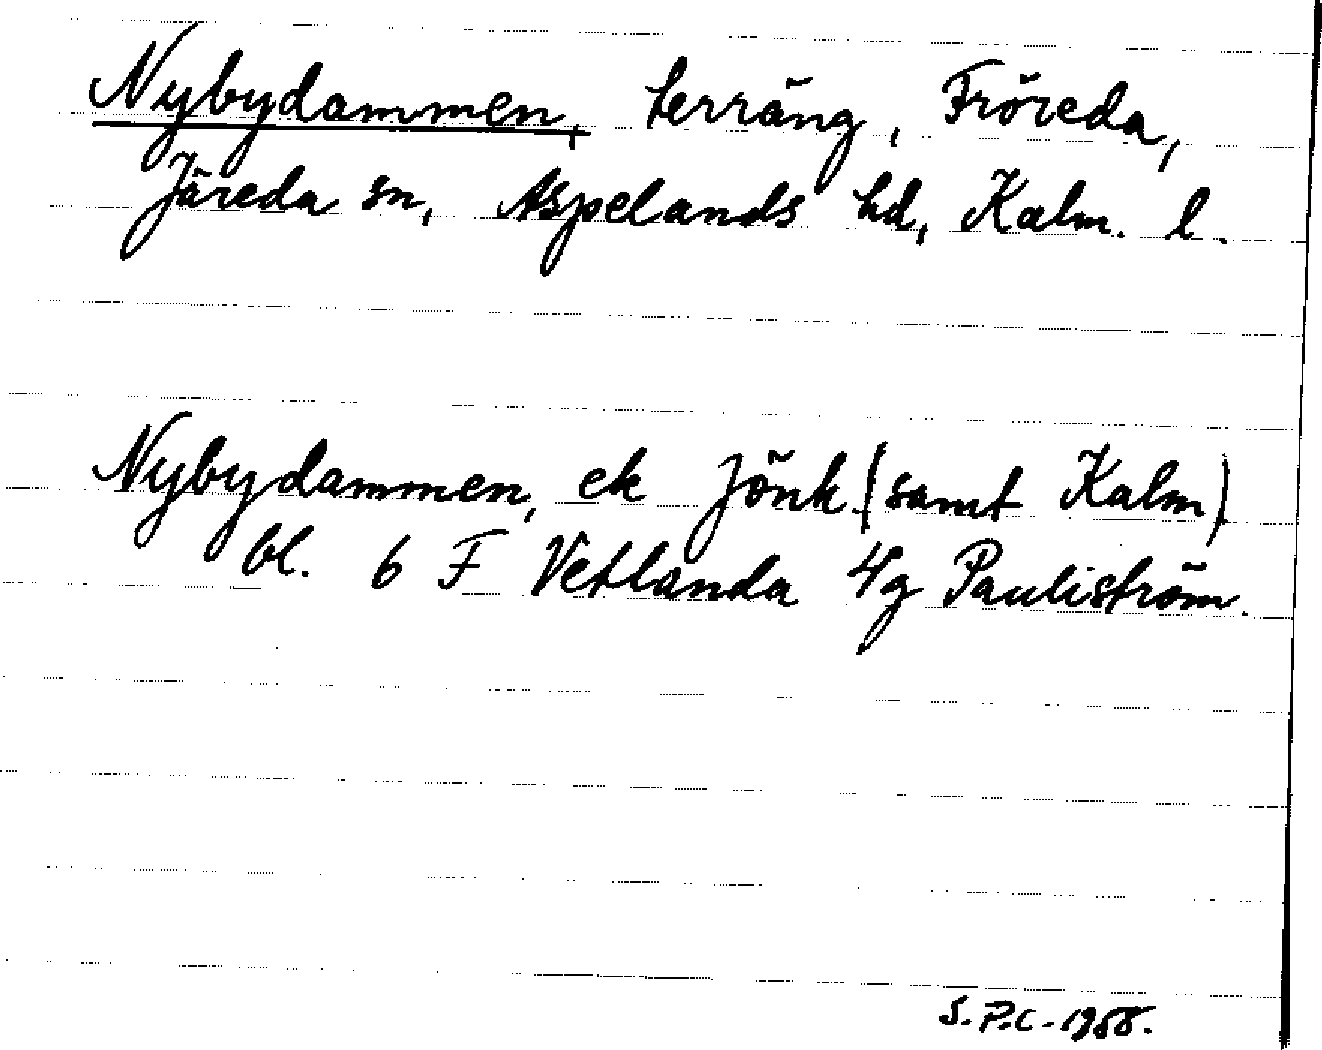 Nybydammen, terräng, Fröreda,
Järeda sn, Aspelands hd, Kalm. l.
Nybydammen, ek Jönk (samt Kalm)
bl. 6 F Vetlanda 4g Pauliström.
S.P.C. 1958.